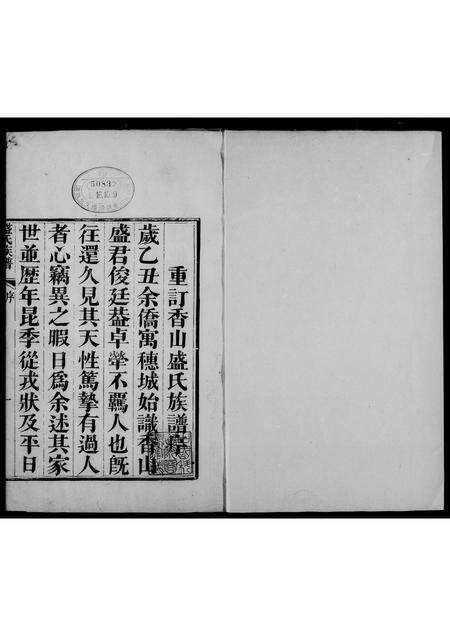 重訂香山盛氏族譜序
歲乙丑余僑寓穗城始識香山
盛君俊廷葢卓犖不羈人也旣
往還久見其天性篤摯有過人
者心竊異之暇日爲余述其家
世並歷年昆季從戎狀及平日
盛氏族譜
序
50832